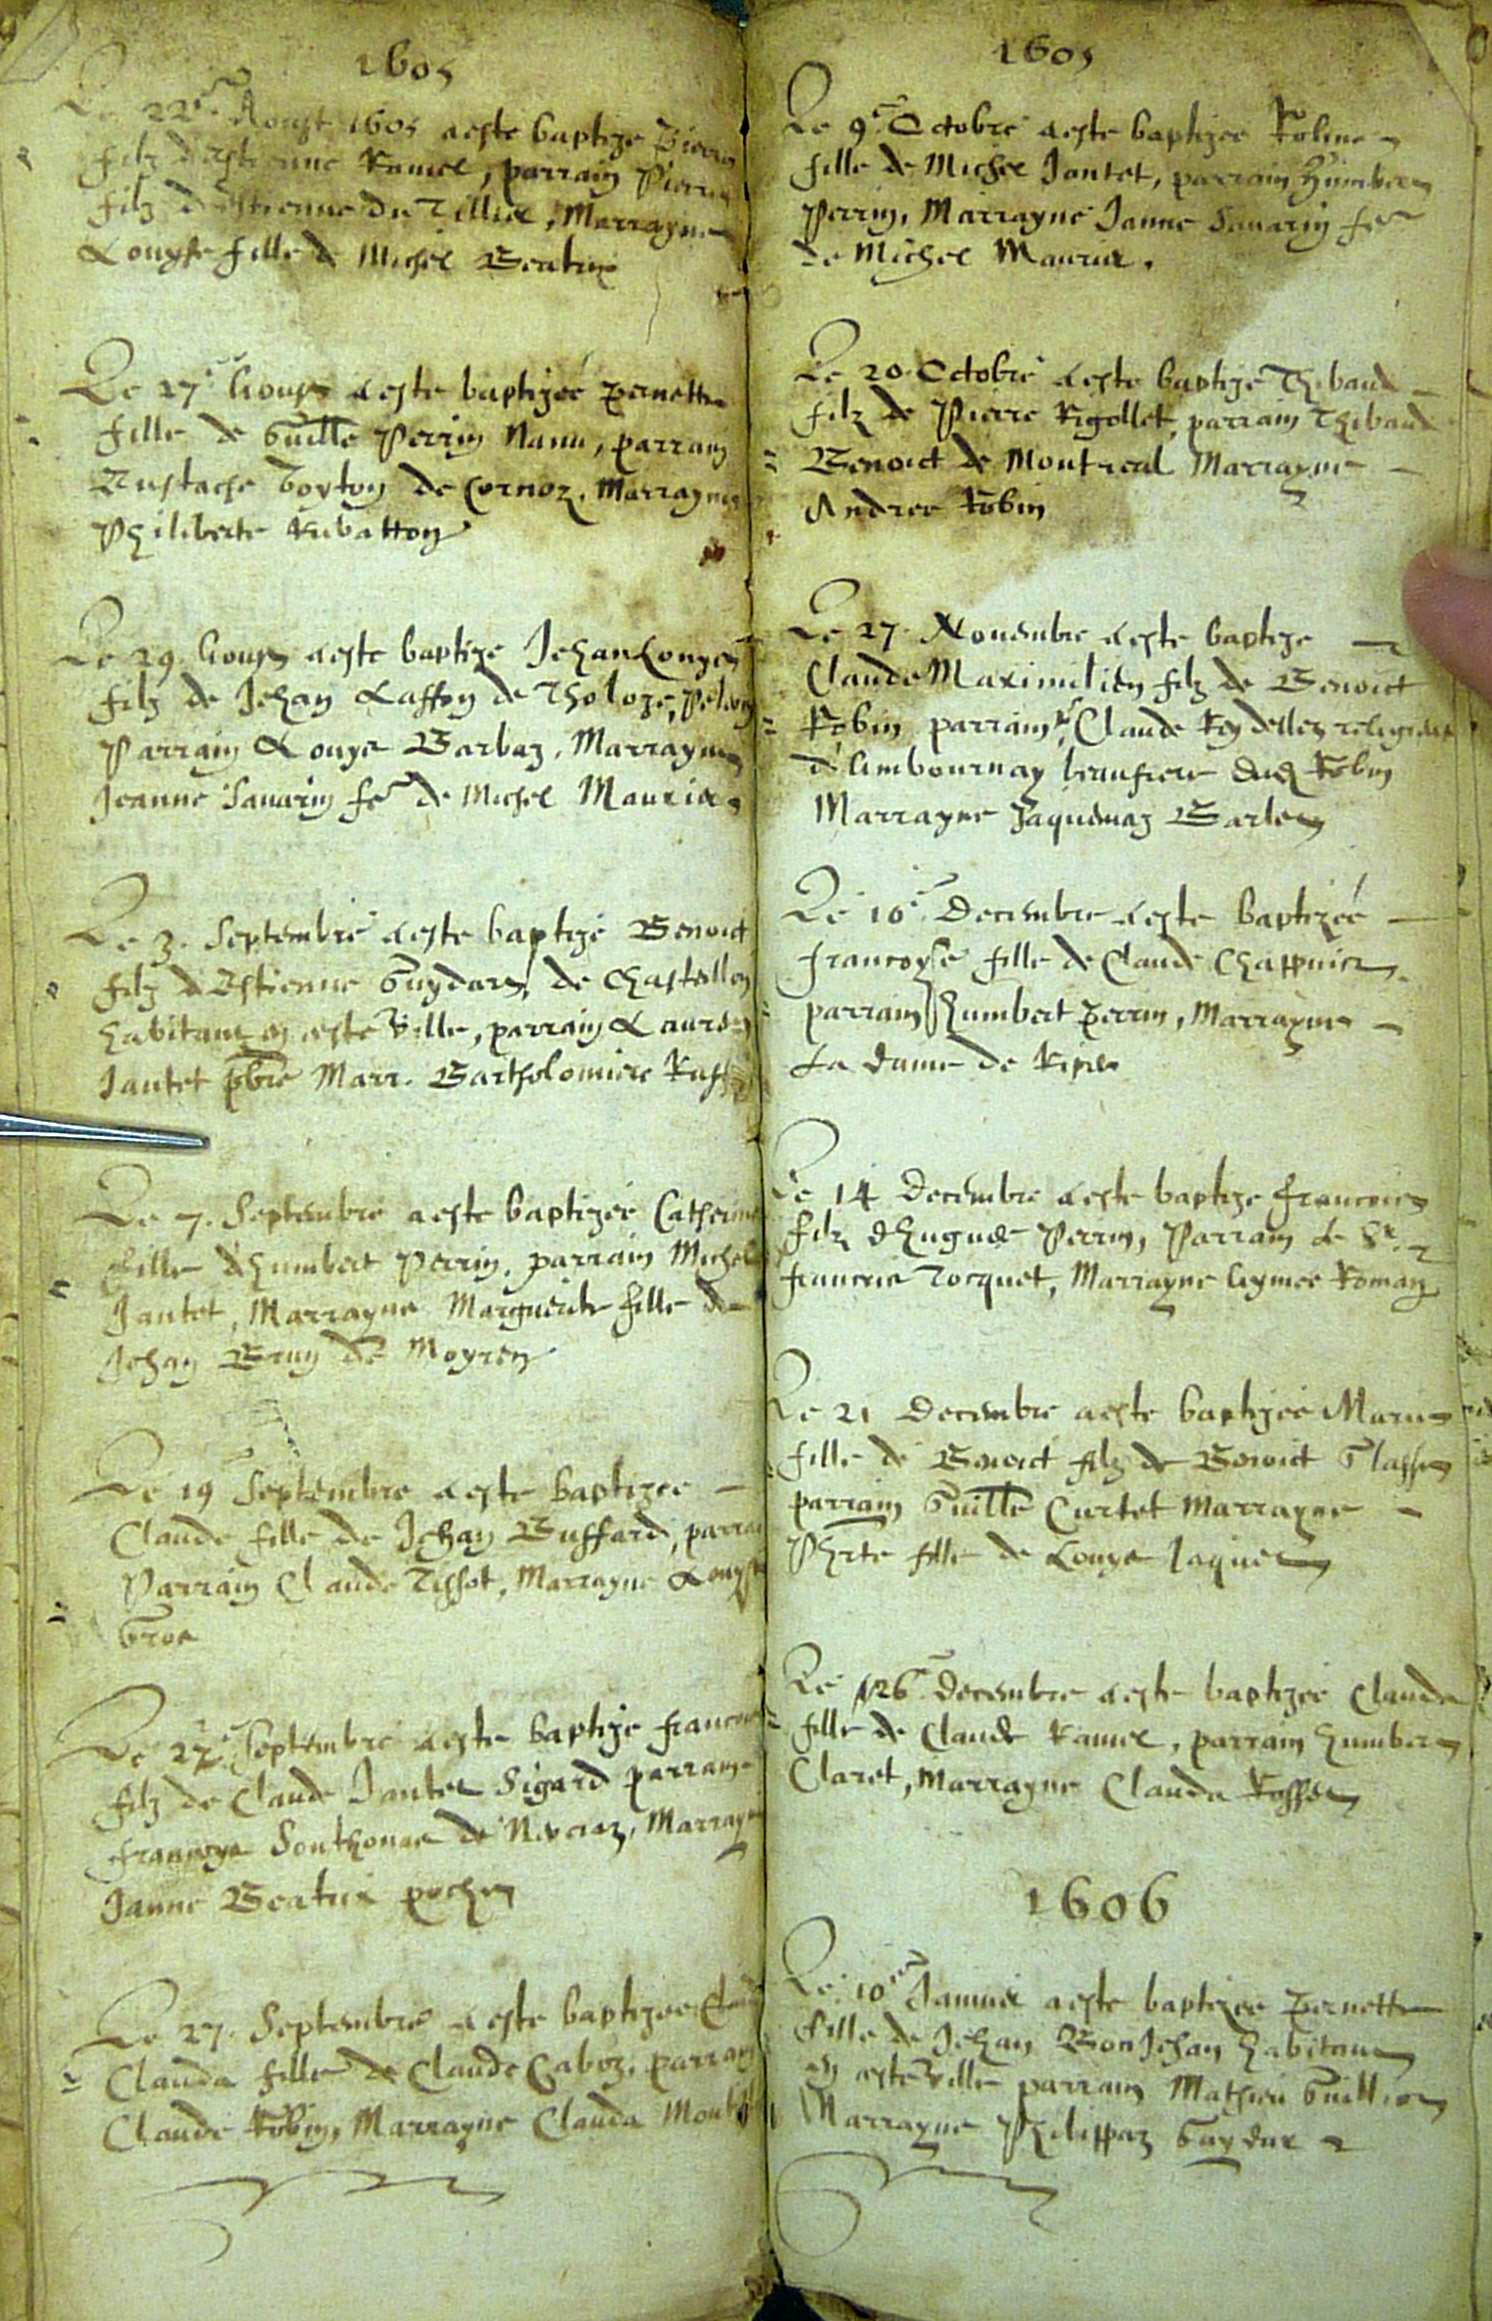 1605
Le 22e Aoust 1605 a este baptize Pierre
filz d'Estienne Ramel, parrain Pierre
filz d'Estienne du Tilliet, Marrayne
Louyse fille de Michel Beatrix
Le 27e Aoust a este baptizée Pernette
fille de Guille Perrin Nanu, parrain
Eustache Goyton de Cornoz, Marrayne
Philiberte Rubatton
Le 29. Aoust a este baptize Jehan Louys
filz de Jehan Laffon de Tholoze,
Parrain Louys Barbaz, Marrayne
Jeanne Savarin fe de Michel Maurier
Le 3. Septembre a este baptizé Benoict
filz d'Estienne Guydard, de Chastillon
habitant en ceste ville, parrain Laurens
Jantet pbre Marr. Bartholomiere
Le 7. Septembre a este baptizée Catherine
fille d'humbert Perrin, parrain Michel
Jantet, Marrayne Marguerite fille de
Jehan Brun de Moyren
Le 19 Septembre a este baptizee
Claude fille de Jehan Buffard, parrain
Parrain Claude Tissot, Marrayne Louyse
Gros
Le 27e Septembre a este baptize francoys
filz de Claude Jantet Sigard parrain
francoys Sonthonas de Neyciaz, Marrayne
Janne Beatrix pochet
Le 27. Septembre a este baptizee
Clauda fille de Claude Caboz, parrain
Claude Robin, Marrayne Clauda
1605
Le 9e Octobre a este baptizee Roline
fille de Michel Jantet, parrain Humbert
Perrin, Marrayne Janne Savarin fe
de Michel Maurier.
Le 20 Octobre a este baptize Thibaud
filz de Pierre Rigollet, parrain Thibaud
Benoict de Montreal Marrayne
Andree Robin
Le 27. Novembre a este baptize
Claude Maximilien filz de Benoict
Robin parrain Claude Reydellet religieux
d'Ambournay beaufrere dud Robin
Marrayne Jaquemaz Barlet
Le 10e Decembre a este baptizée
francoyse fille de Claude Chappuis
parrain humbert Perrin, Marrayne
La dame de
Le 14 Decembre a este baptize francois
filz d'hugues Perrin, Parrain le Sr
francois Tocquet, Marrayne Aymee Roman
Le 21 Decembre a este baptizée Marie
fille de Benoict filz de Benoict
parrain Guille Curtet Marrayne
Phrte fille de Louys Jaquet
Le 26e Decembre a este baptizée Clauda
fille de Claude Ramel, parrain humbert
Claret, Marrayne Clauda Rosset
1606
Le 10e Janvier a este baptizee Pernette
fille de Jehan Bon Jehan habitant
en ceste ville parrain Mathieu Guillion
Marrayne Philippaz Guydard